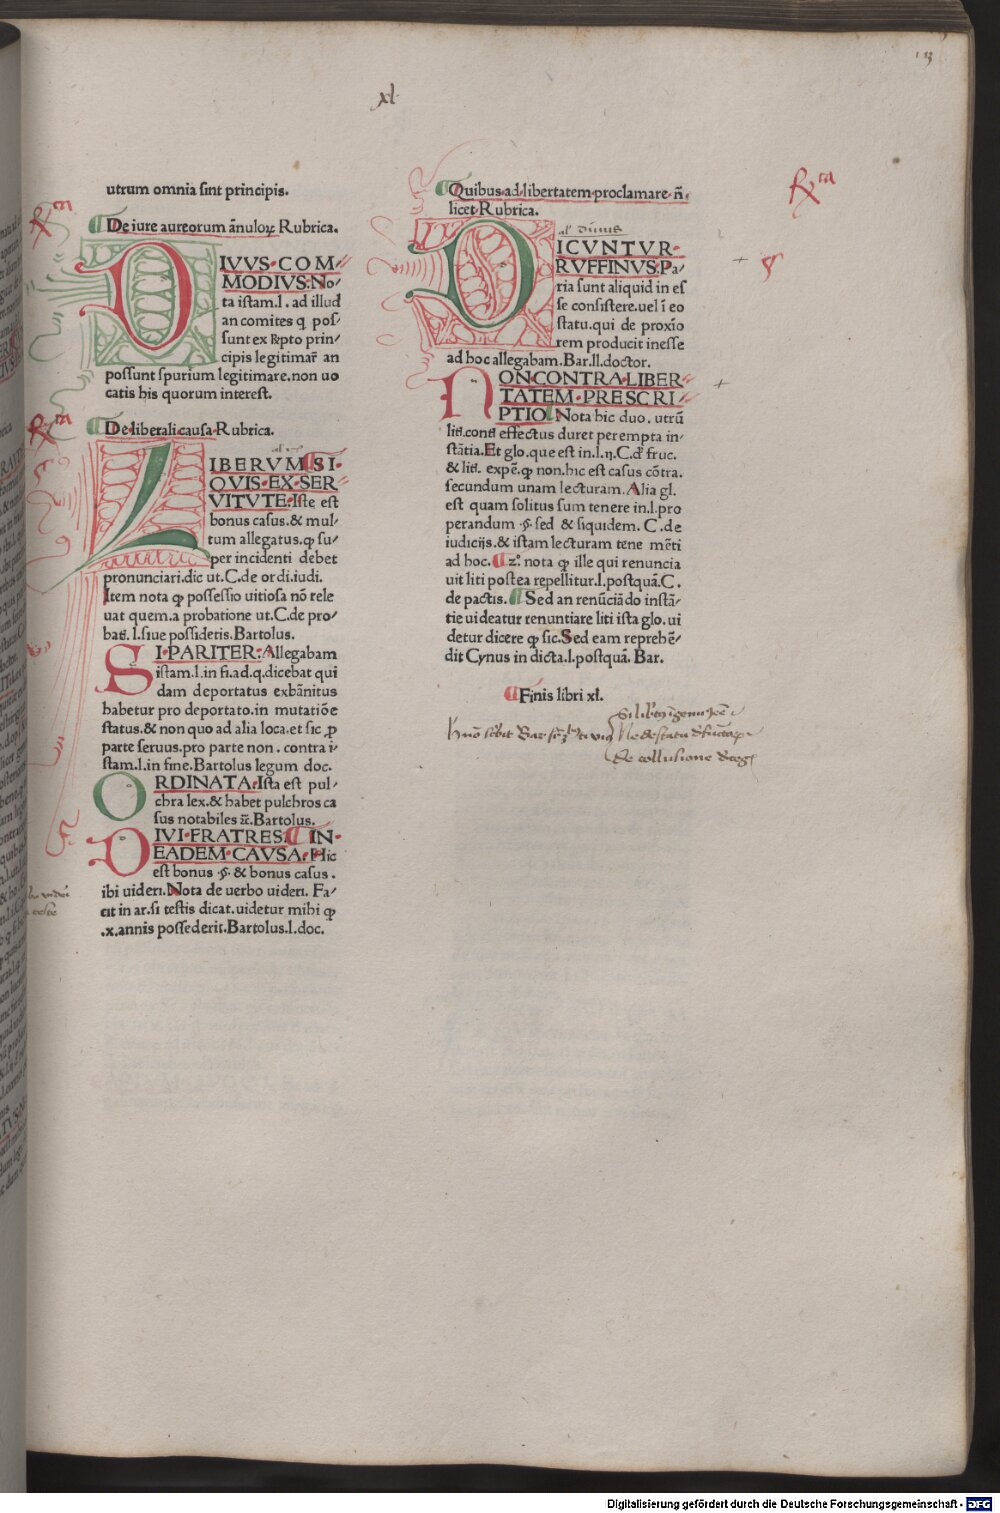 xl
utrum omnia sint principis.
De iure aureorum ānuloꝝ Rubrica.
DIVVS COM
MODIVS: No/
ta istam.l. ad illud
an comites q pos/
sunt ex rescripto prin/
cipis legitimar̄ an
possunt spurium legitimare.non uo
catis his quorum interest.
De liberali causa Rubrica.
LIBERVM SI
QVIS EX SER
VITVTE: Iste est
bonus casus.& mul/
tum allegatus.ꝙ su/
per incidenti debet
pronunciari.dic ut.C.de ordi.iudi.
Item nota ꝙ possessio uitiosa nō rele
uat quem.a probatione ut.C.de pro/
bati.l.siue possidetis.Bartolus.
SI PARITER: Allegabam
istam.l.in fi.ad.q.dicebat qui
dam deportatus exbānitus
habetur pro deportato.in mutatiōe
status.& non quo ad alia loca.et sic ꝓ
parte seruus.pro parte non. contra i/
stam.l.in fine.Bartolus legum doc.
ORDINATA: Ista est pul/
chra lex.& habet pulchros ca
sus notabiles &c̄.Bartolus.
DIVI FRATRES. IN
EADEM CAVSA: Hic
est bonus .§. & bonus casus.
ibi uideri.Nota de uerbo uideri. Fa/
cit in ar.si testis dicat.uidetur mihi ꝙ
.x.annis possederit.Bartolus.l.doc.
Quibus ad libertatem proclamare n̄
licet Rubrica.
al' diuus
DICVNTVR
RVFFINVS: Pa/
ria sunt aliquid in es
se consistere.uel ī eo
statu.qui de proxīo
rem producit inesse
ad hoc allegabam.Bar.ll.doctor.
NON CONTRA LIBER
TATEM PRESCRI
PTIO Nota hic duo. utrū
liti.conti effectus duret perempta in/
stātia.Et glo.que est in.l.ij.C.d' fruc.
& liti. expē.ꝙ non.hic est casus cōtra.
secundum unam lecturam. Alia gl.
est quam solitus sum tenere in.l.pro
perandum .§. sed & siquidem. C.de
iudicijs.& istam lecturam tene mēti
ad hoc. 2.° nota ꝙ ille qui renuncia
uit liti postea repellitur.l.postquā.C.
de pactis. Sed an renūciādo instā/
tie uideatur renuntiare liti ista glo.ui
detur dicere ꝙ sic.Sed eam reprehē/
dit Cynus in dicta.l.postquā. Bar.
Finis libri xl.